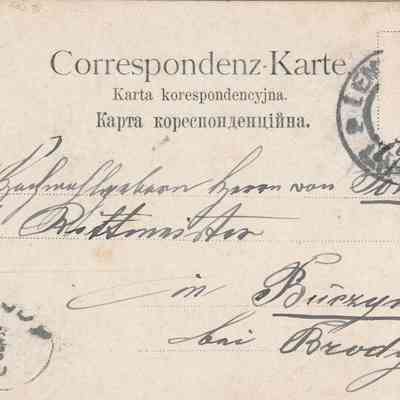 Correspondenz-Karte.
Karta korespondencyjna.
Карта кореспонденційна.
LEM
Hochwohlgeborn Herrn von
Rittmeister
in
bei Brody